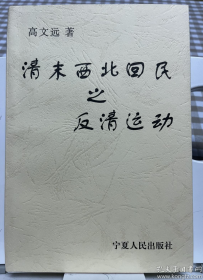 高文远 著
清末西北回民
之
反清运动
宁夏人民出版社